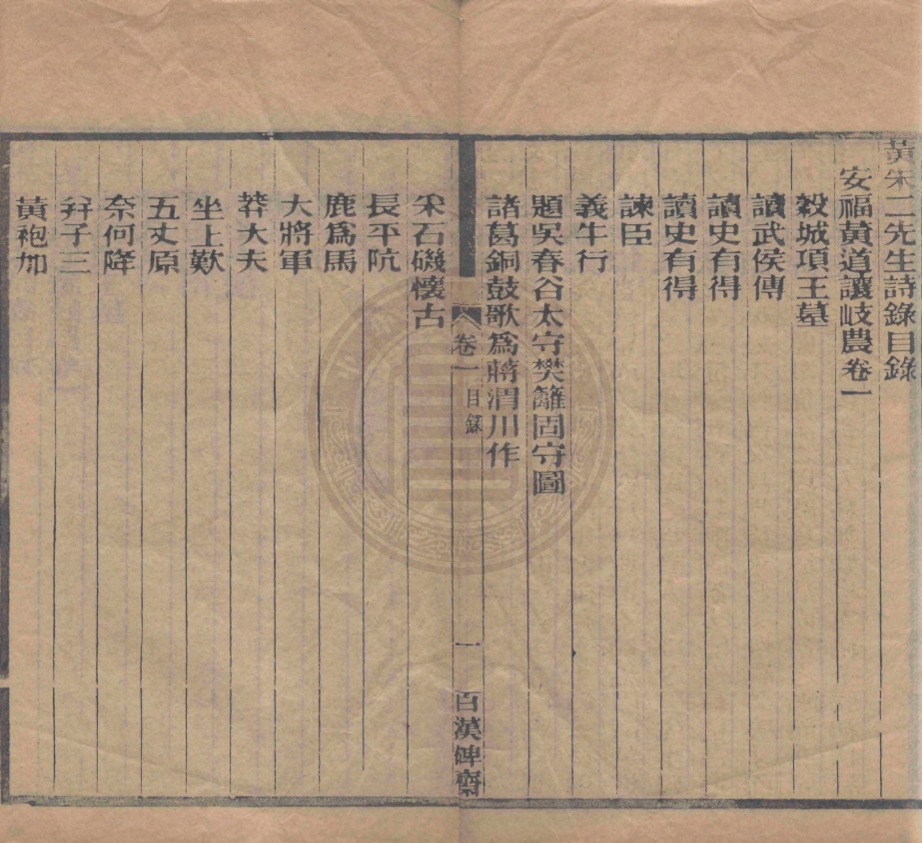 黃朱二先生詩錄目錄
安福黃道讓岐農卷一
穀城項王墓
讀武侯傳
讀史有得
讀史有得
諫臣
義牛行
題吳春谷太守樊籬固守圖
諸葛銅鼓歌爲蔣渭川作
卷一
目錄
一
百漢碑齋
采石磯懷古
長平阬
鹿爲馬
大將軍
莽大夫
坐上歎
五丈原
奈何降
弃子三
黃袍加